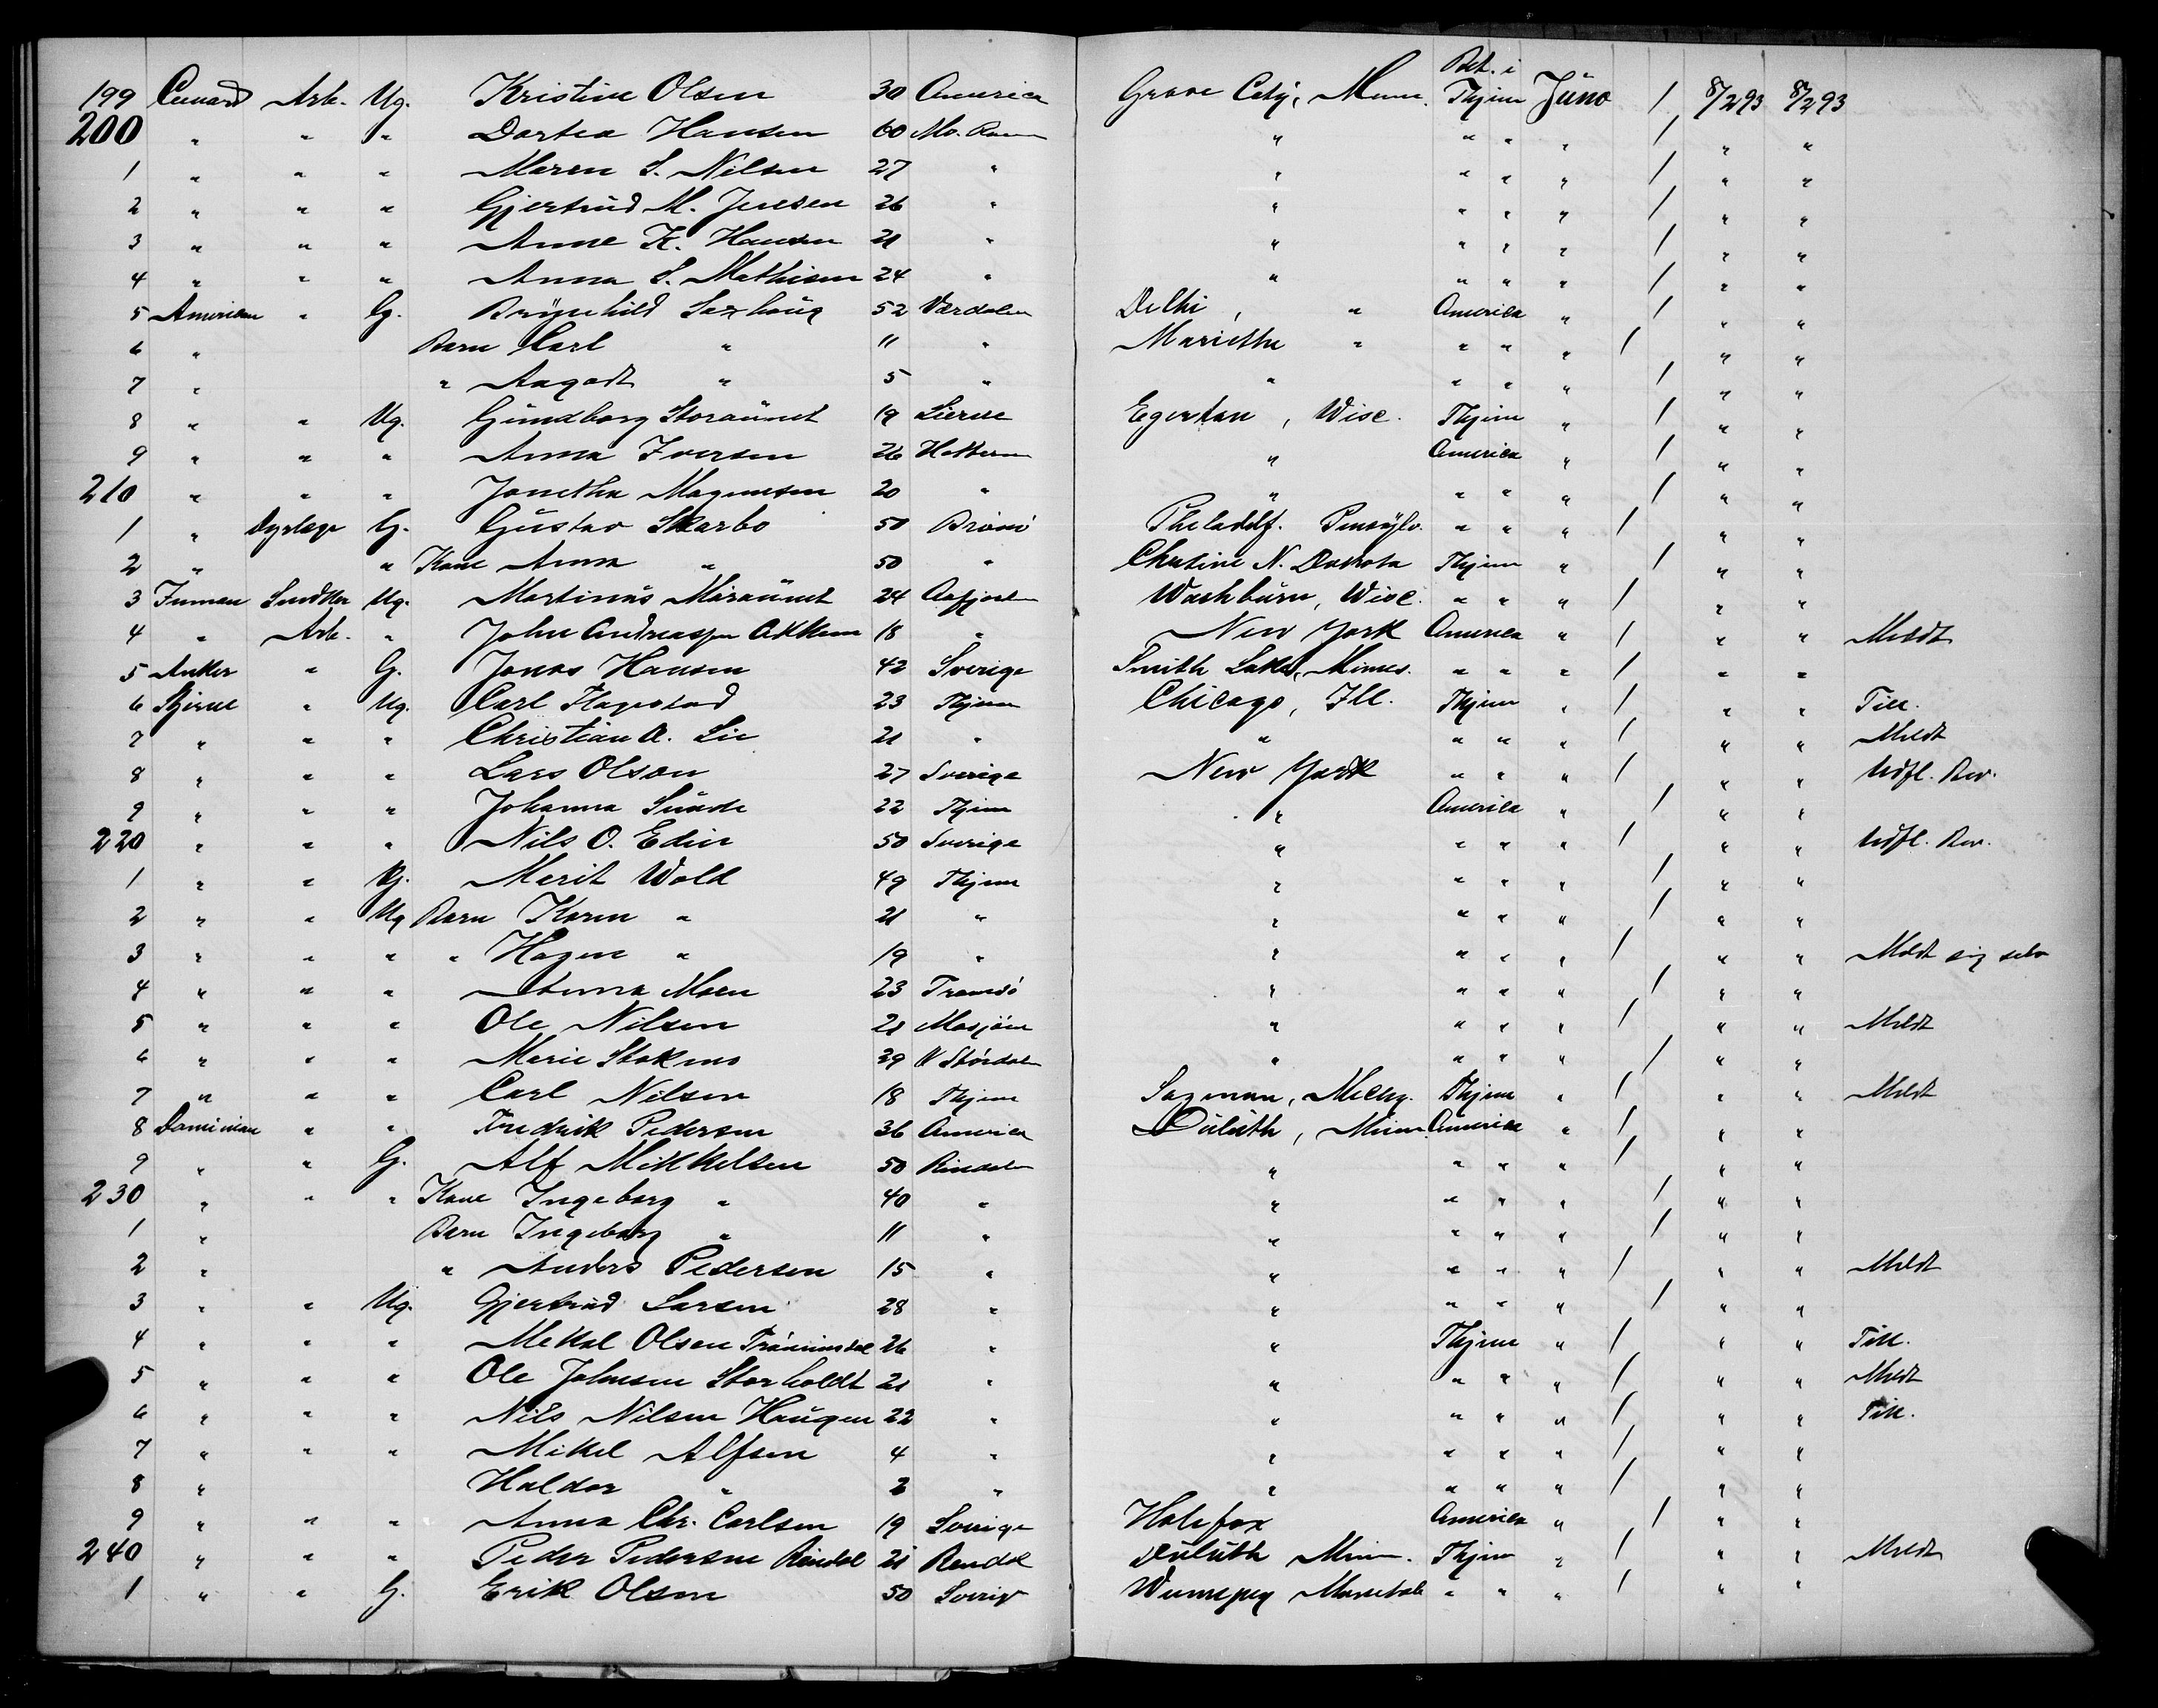 Bet. i
199 Cunard Arb. Ug. Kristine Olsen 30 America Grove City, Minn. Thjem Juno 1 8/2 93 8/2 93
200 " " " Dortea Hansen 60 Mo. Ranen " " " " 1 " "
1 " " " Maren S. Nilsen 27 " " " " " 1 " "
2 " " " Gjertrud M. Jensen 26 " " " " " 1 " "
3 " " " Anne K. Hansen 21 " " " " " 1 " "
4 " " " Anna S. Mathisen 24 " " " " " 1 " "
5 American " G. Brynhild Saxhaug 52 Værdalen Delhi, " America " 1 " "
6 " Barn Carl " 11 " Mariethe " " " " 1 " "
7 " " Aagodt " 5 " " " " " 1 " "
8 " " Ug. Gundborg Storaunet 19 Lierne Egertan, Wisc. Thjem " 1 " "
9 " " " Anna Iversen 26 " America " 1 " "
210 " " " Jonetha Magnusen 20 " " " " " 1 " "
1 " Dyrlæge G. Gustav Skarbo 50 Brønø Philadelf. Pensylv. " " " 1 " "
2 " " Kone Anna " 50 " Christine N. Dakota Thjem " 1 " "
3 Inman Snedker Ug. Martinus Møraunet 24 Aafjorden Washburn, Wisc. " " " 1 " "
4 " Arb. " John Andreassen Akkern 18 " New York America " 1 " " Meldt
5 Anker " G. Jonas Hansen 42 Sverige Smith Lake, Minnes. " " " 1 " "
6 Stjerne " Ug. Carl Flagestad 23 Thjem Chicago, Ill. Thjem " 1 " " Till.
7 " " " Christian A. Lie 21 " " " " " 1 " " Meldt
8 " " " Lars Olson 27 Sverige New York " " " 1 " " Udfl. Bev.
9 " " " Johanna Sunde 22 Thjem " America " 1 " "
220 " " " Nils O. Edin 50 Sverige " " " " 1 " " Udfl. Bev.
1 " " G. Merit Wold 49 Thjem " " " " 1 " "
2 " " Ug Barn Karen " 21 " " " " " 1 " "
3 " " " " Hagen " 19 " " " " " 1 " " Meldt sig selv
4 " " " Anna Moen 23 Tromsø " " " " 1 " "
5 " " " Ole Nilsen 21 Mosjøen " " " " 1 " " Meldt
6 " " " Marie Stokmo 29 N Stördalen " " " " 1 " "
7 " " " Carl Nilsen 18 Thjem Sagenan, Michg. Thjem " 1 " " Meldt
8 Dominion " " Fredrik Pedersen 36 America Duluth, Minn America " 1 " "
9 " " G. Alf Mikkelsen 50 Rindalen " " " " 1 " "
230 " " " Kone Ingeborg " 40 " " " " " 1 " "
1 " Barn Ingeborg " 11 " " " " " 1 " "
2 " " Anders Pedersen 15 " " " " " 1 " " Meldt
3 " " Ug. Gjertrud Larsen 28 " " " " " 1 " "
4 " " " Mekal Olsen Trönninsdal 26 " " Thjem " 1 " " Till.
5 " " " Ole Johnsen Storholdt 21 " " " " " 1 " " Meldt
6 " " " Nils Nilsen Haugen 22 " " " " " 1 " " Till.
7 " " " Mikel Alfsen 4 " " " " " 1 " "
8 " Haldor " 2 " " " " " 1 " "
9 " " " Anna Chr. Carlsen 19 Sverige Halefax America " 1 " "
240 " " " Peder Pedersen Rindal 21 Rendal Duluth Minn. Thjem " 1 " " Meldt
1 " " G. Erik Olsen 50 Sverig Winnepeg Manetoba " " " 1 " "